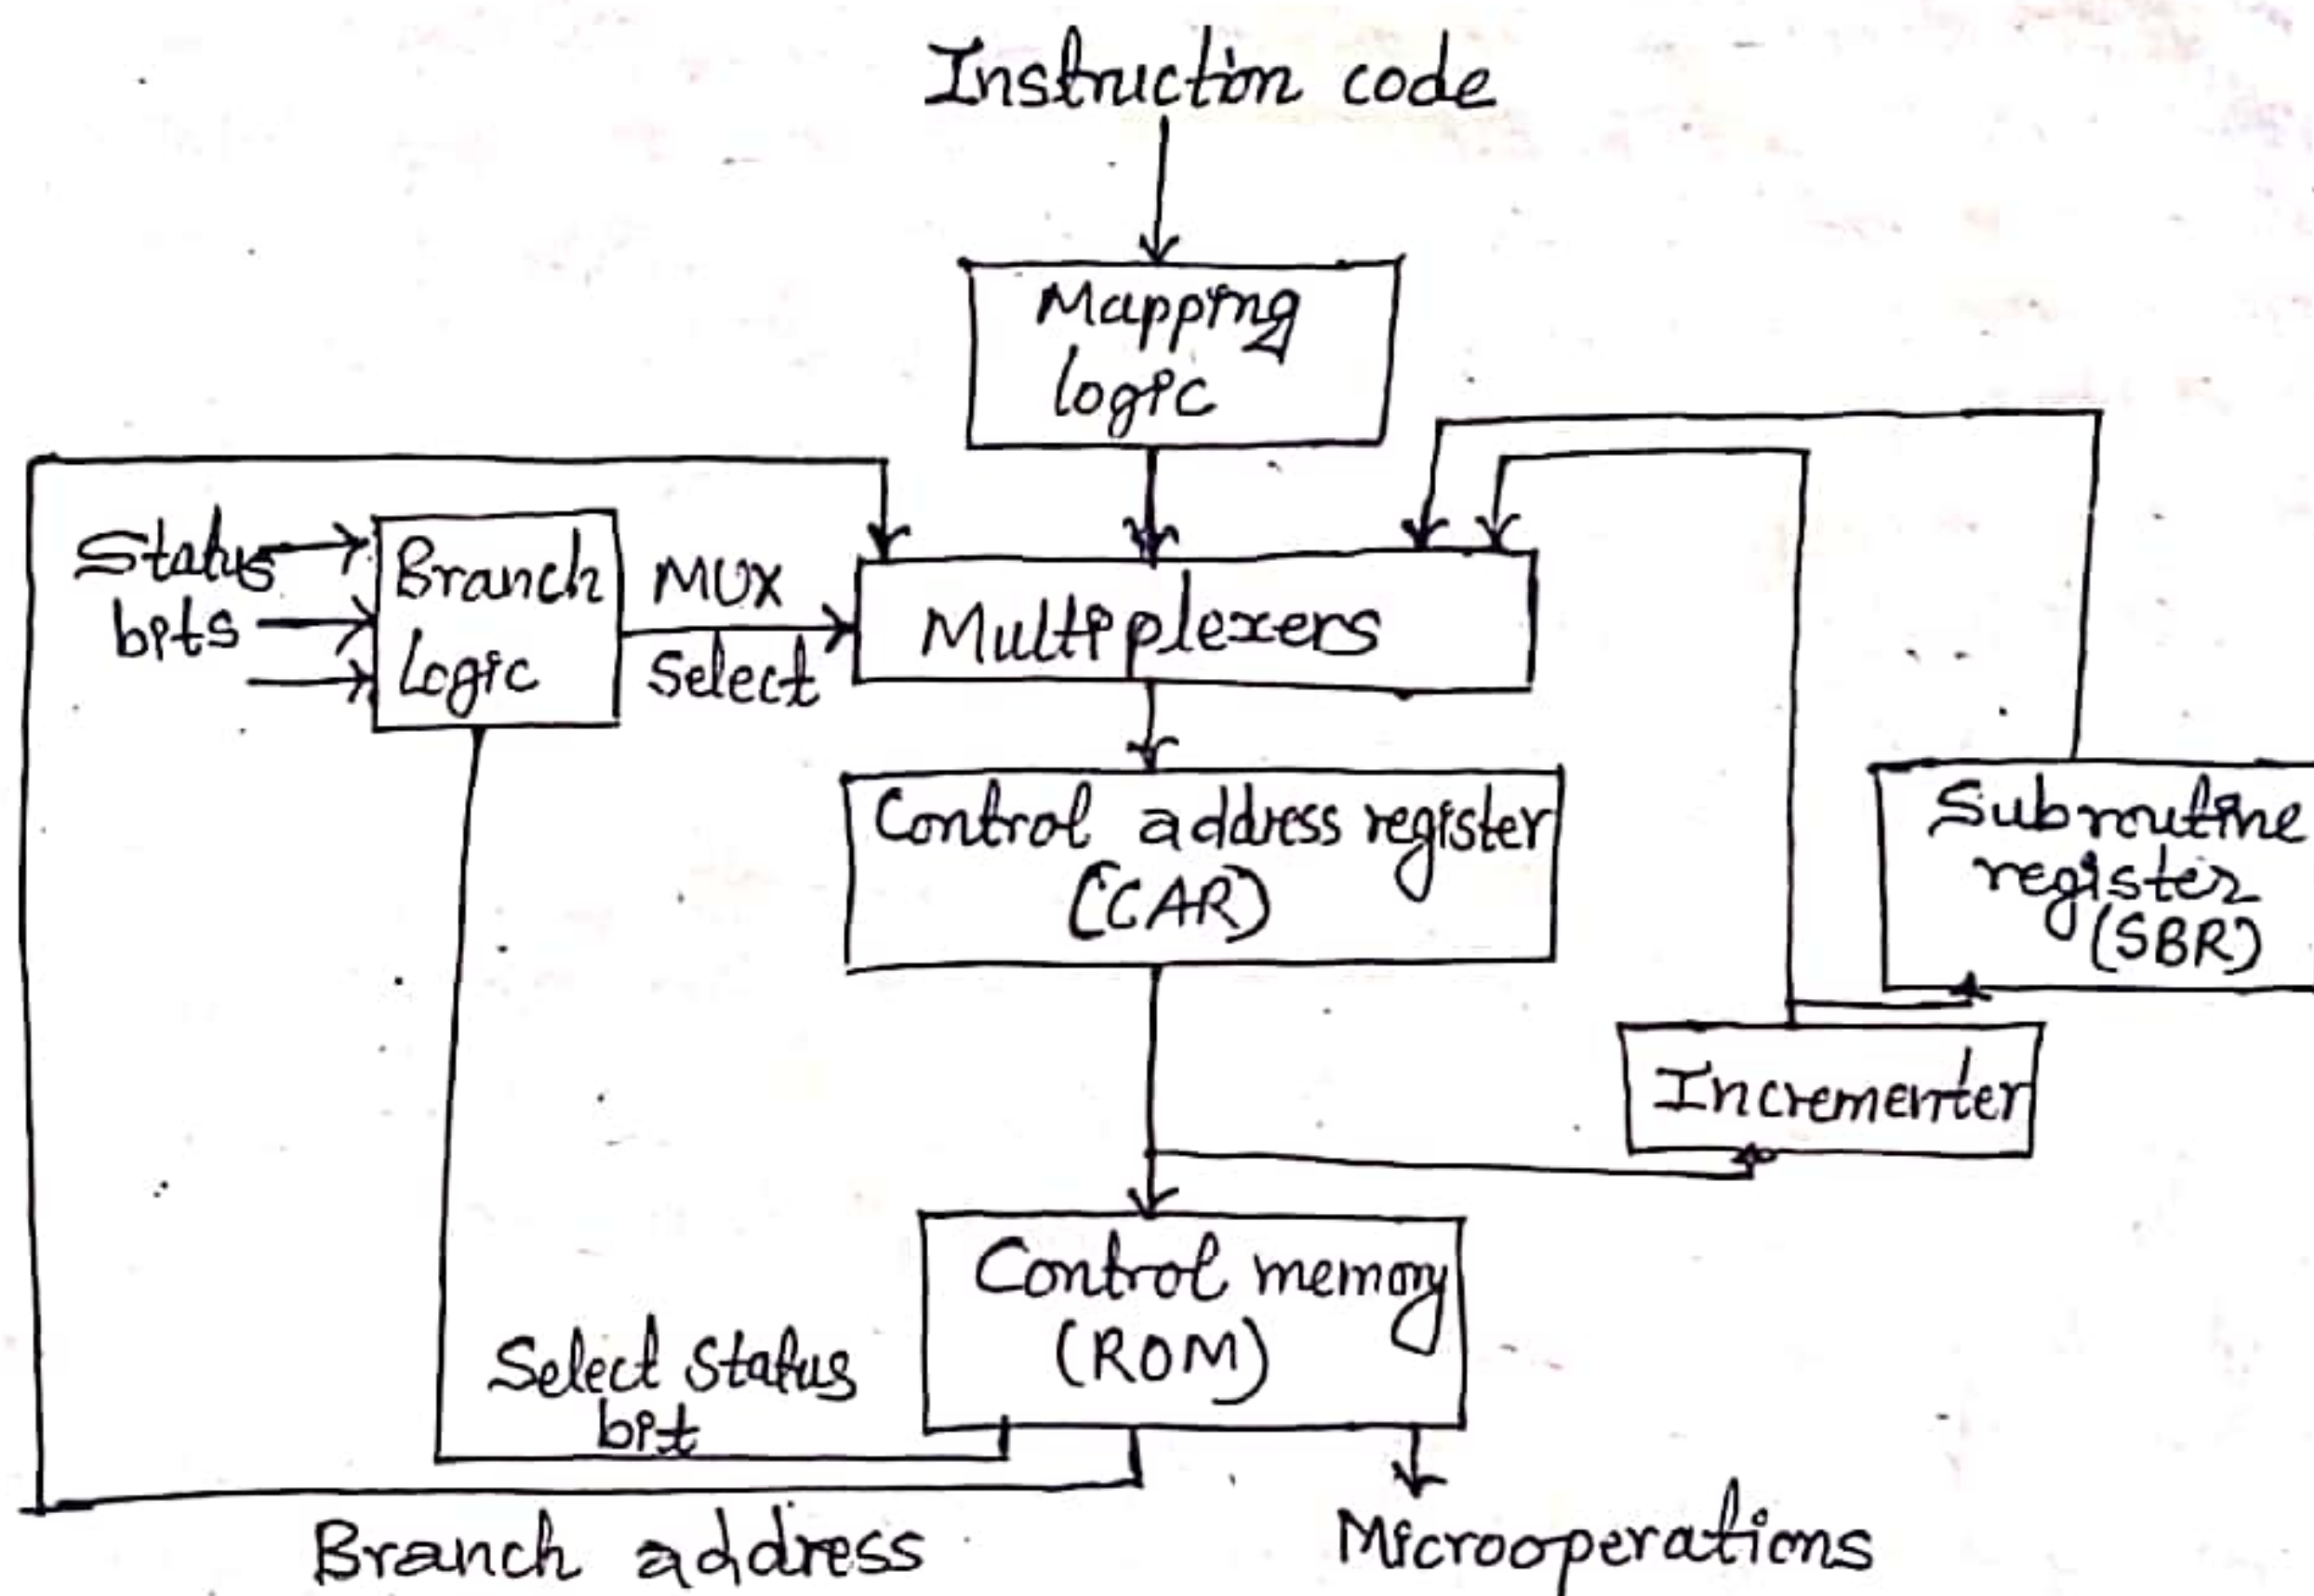 Instruction code
Mapping
logic
Status
bits
Branch
Logic
MUX
Select
Multiplexers
Control address register
(CAR)
Subroutine
register
(SBR)
Incrementer
Control memory
(ROM)
Select Status
bit
Branch address
Microoperations